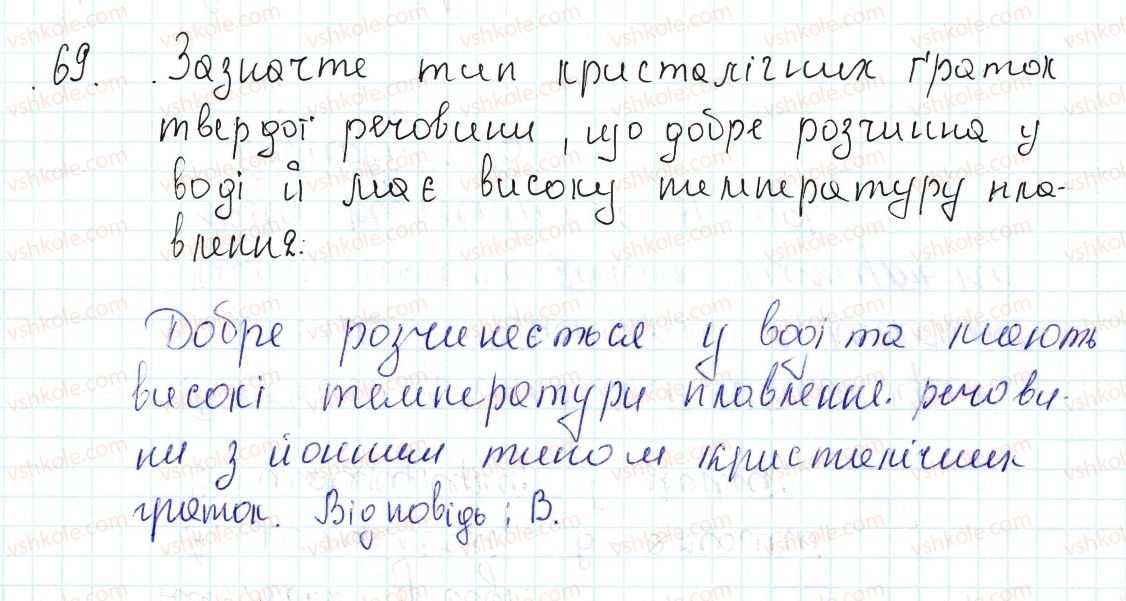 69. Зазначте тип кристалічних ґраток
твердої речовини, що добре розчинна у
воді й має високу температуру пла-
влення:
Добре розчиняється у воді та мають
високі температури плавлення речови-
ни з йонним типом кристалічних
ґраток. Відповідь: В.